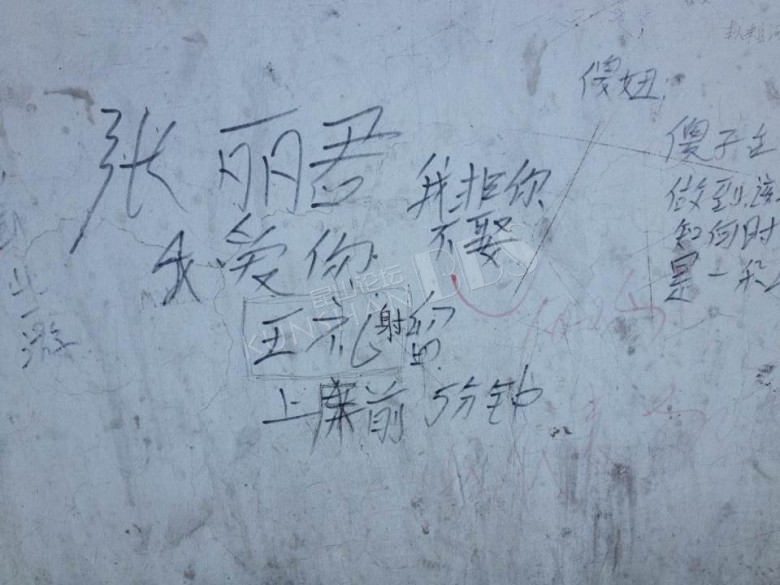 傻妞
张丽君
我非你
不娶
我爱你
王礼射留
上床前5分钟
傻子
做到该
知何时
是一
此
一游
昆山论坛
BBS
KUNSHAN